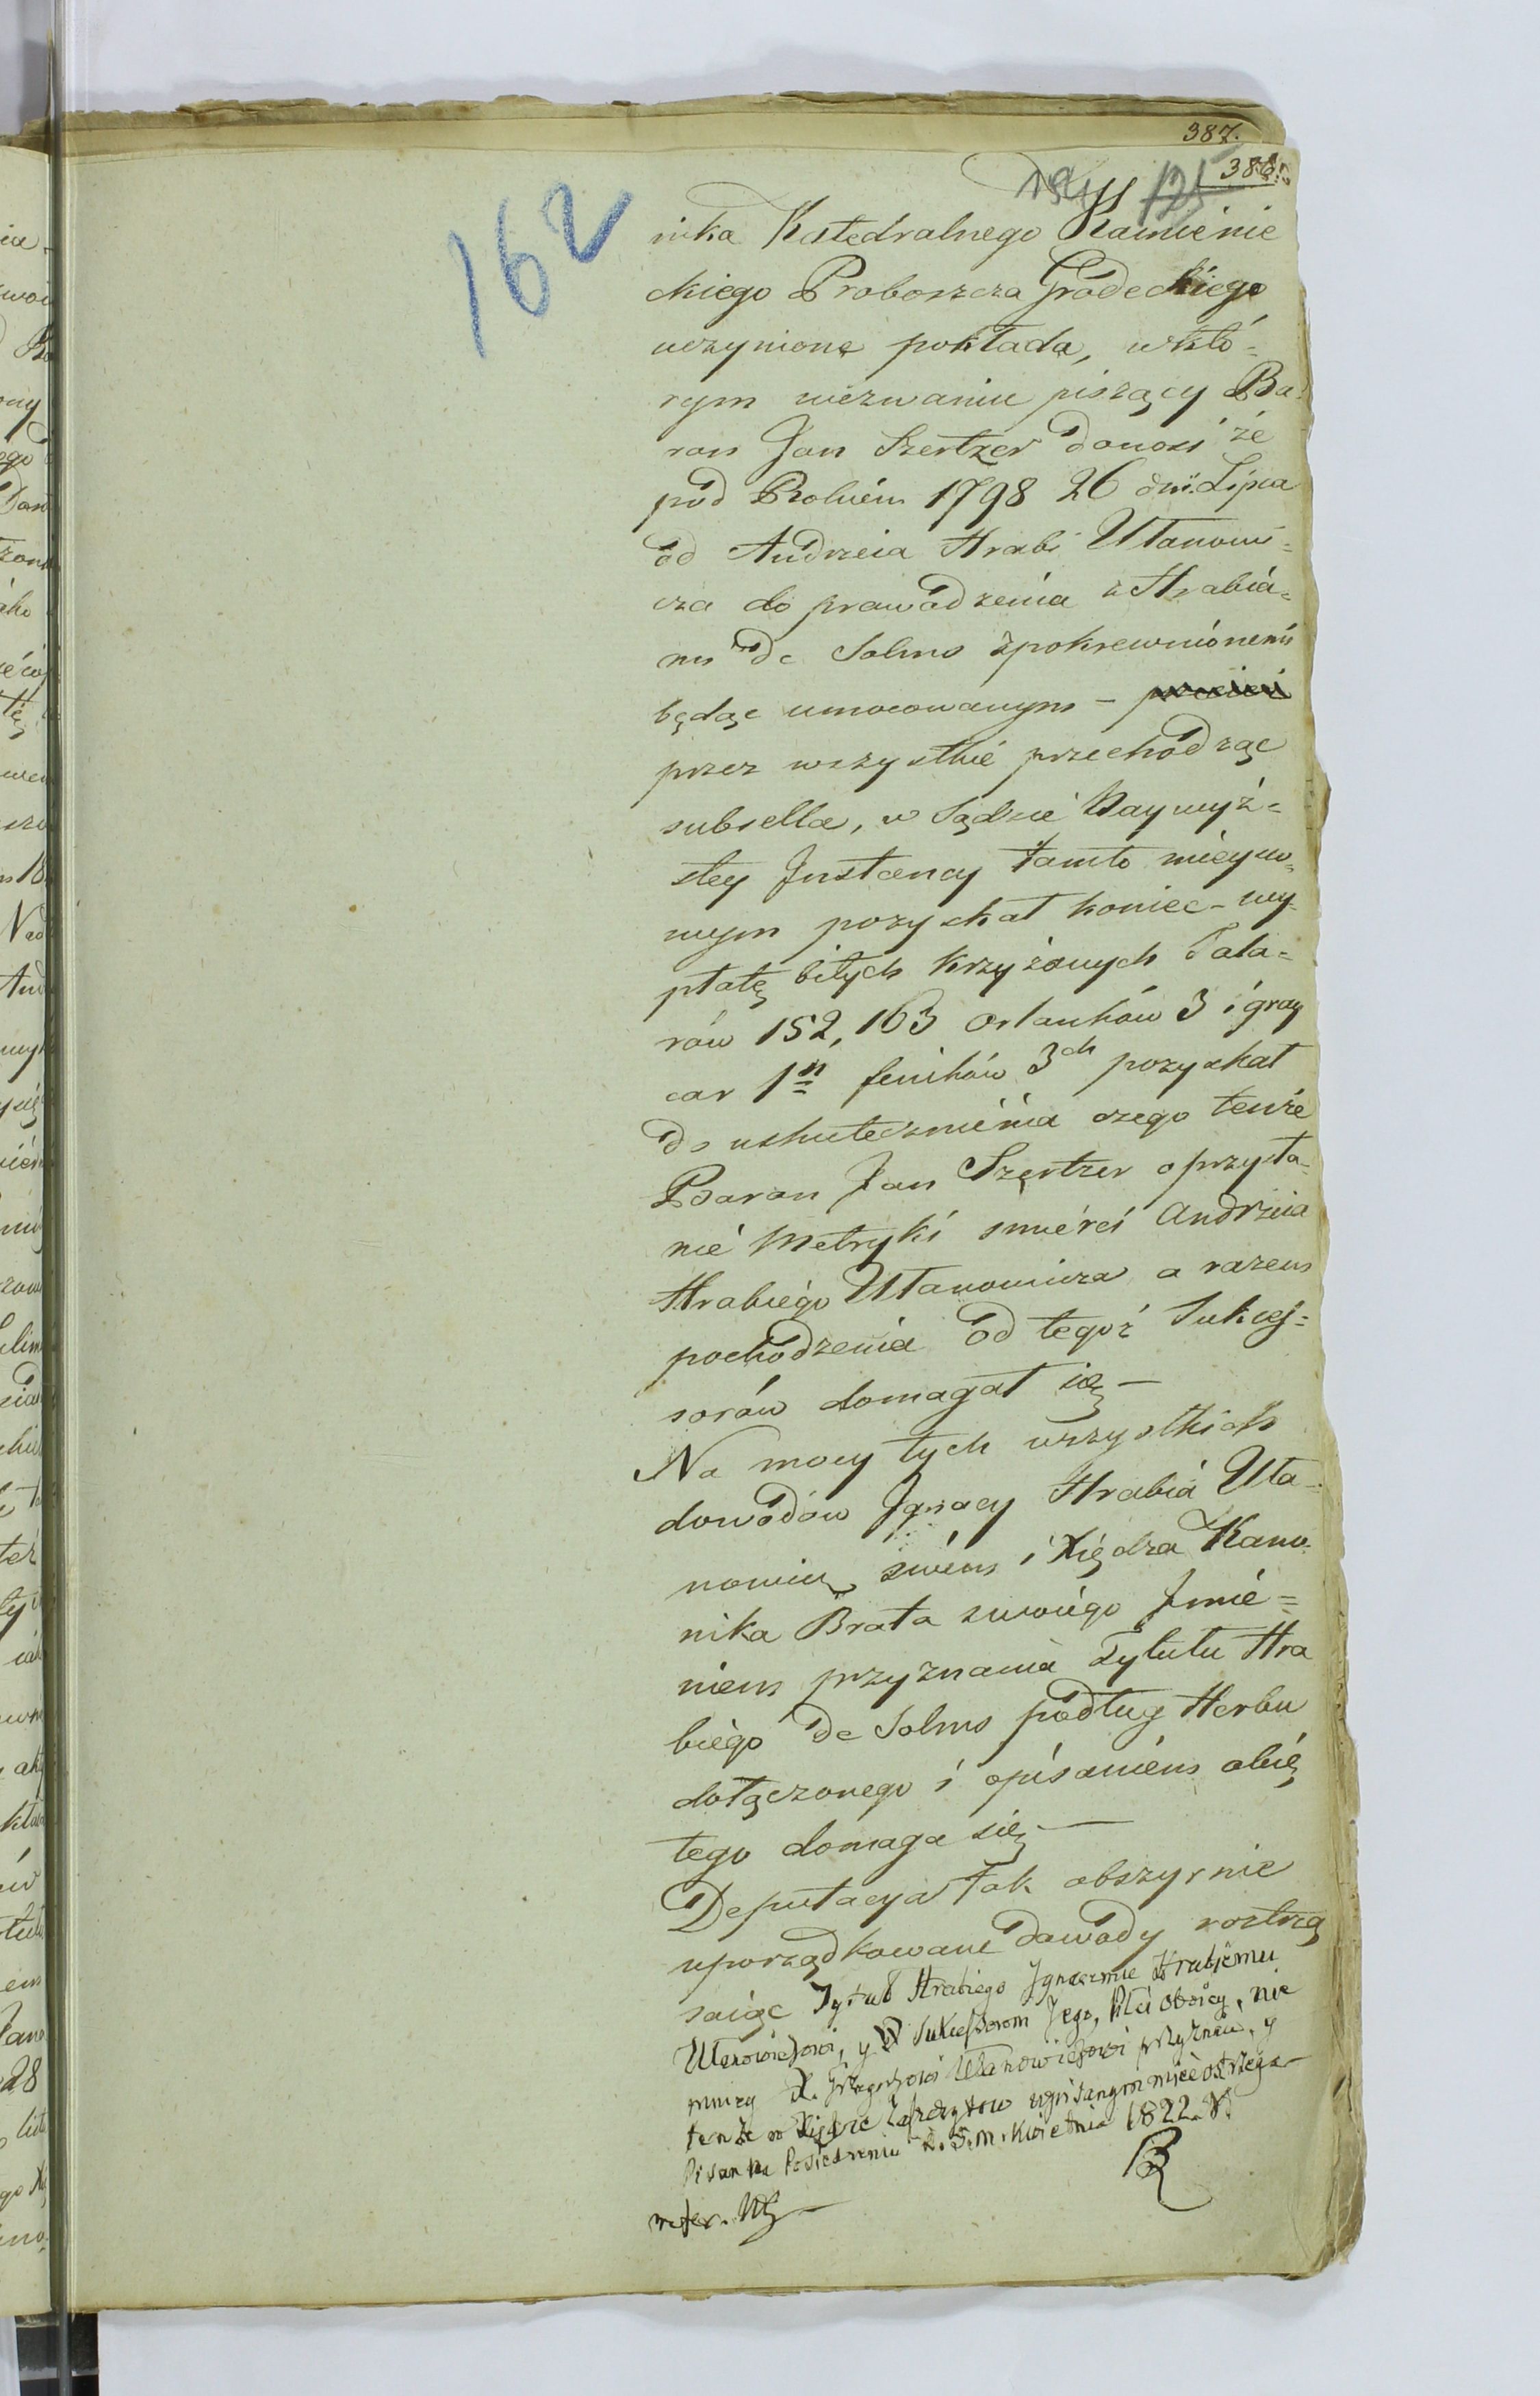 387.
386.
162
nika Katedralnego Kamienie
ckiego Proboszcza Gródeckiego
uczynione pokłada, w któ=
rym wezwaniu piszący Ba=
ron Jan Szertzer donosi że
pod Rokiem 1798 26 dni. Lipca
od Andrzeia Hrabi Ułanowi=
cza do prawadzenia z Hrabia=
mi de Solms spokrewnionemi
będąc umocowanym –
przez wszystkie przechodząc
subsellia, w Sądzie Naywyż=
szey Instancy tamto mieyſco=
wym pozyskał koniec – wy=
płatę bitych krzyżowych Tala=
rów 152,163 orlanków 3 i gray
car 1n fenihów 3ch pozyskał
do uskutecznienia czego tenże
Baron Jan Szertzer o przysła=
nie Metryki smierci Andrzeia
Hrabiego Ułanowicza a razem
pochodzenia od tegoż Sukceſ=
sorów domagał się –
Na mocy tych wszystkich
dowodów Ignacy Hrabia Uła=
nowicz swem i Xiędza Kano=
nika Brata swoiego Imie=
niem przyznania Tytułu Hra
biego de Solms podług Herbu
dołączonego i opisaniem
tego domaga się –
Deputacya tak obszyrnie
uporządkowane dowody roztrzą
saiąc Tytuł Hrabiego Ignacemu Hrabiemu
Ułanowiczowi, y Sukceſsorom Jego, Płci Oboiey, nie
mniey X. Grzegorzowi Ułanowiczowi przyznaie, y
tenże w Xiędze Zaszczytow zapisanym mieć ostrzega –
Pisan na Posiedzeniu D. 5. m. Kwietnia 1822. R.
refer.